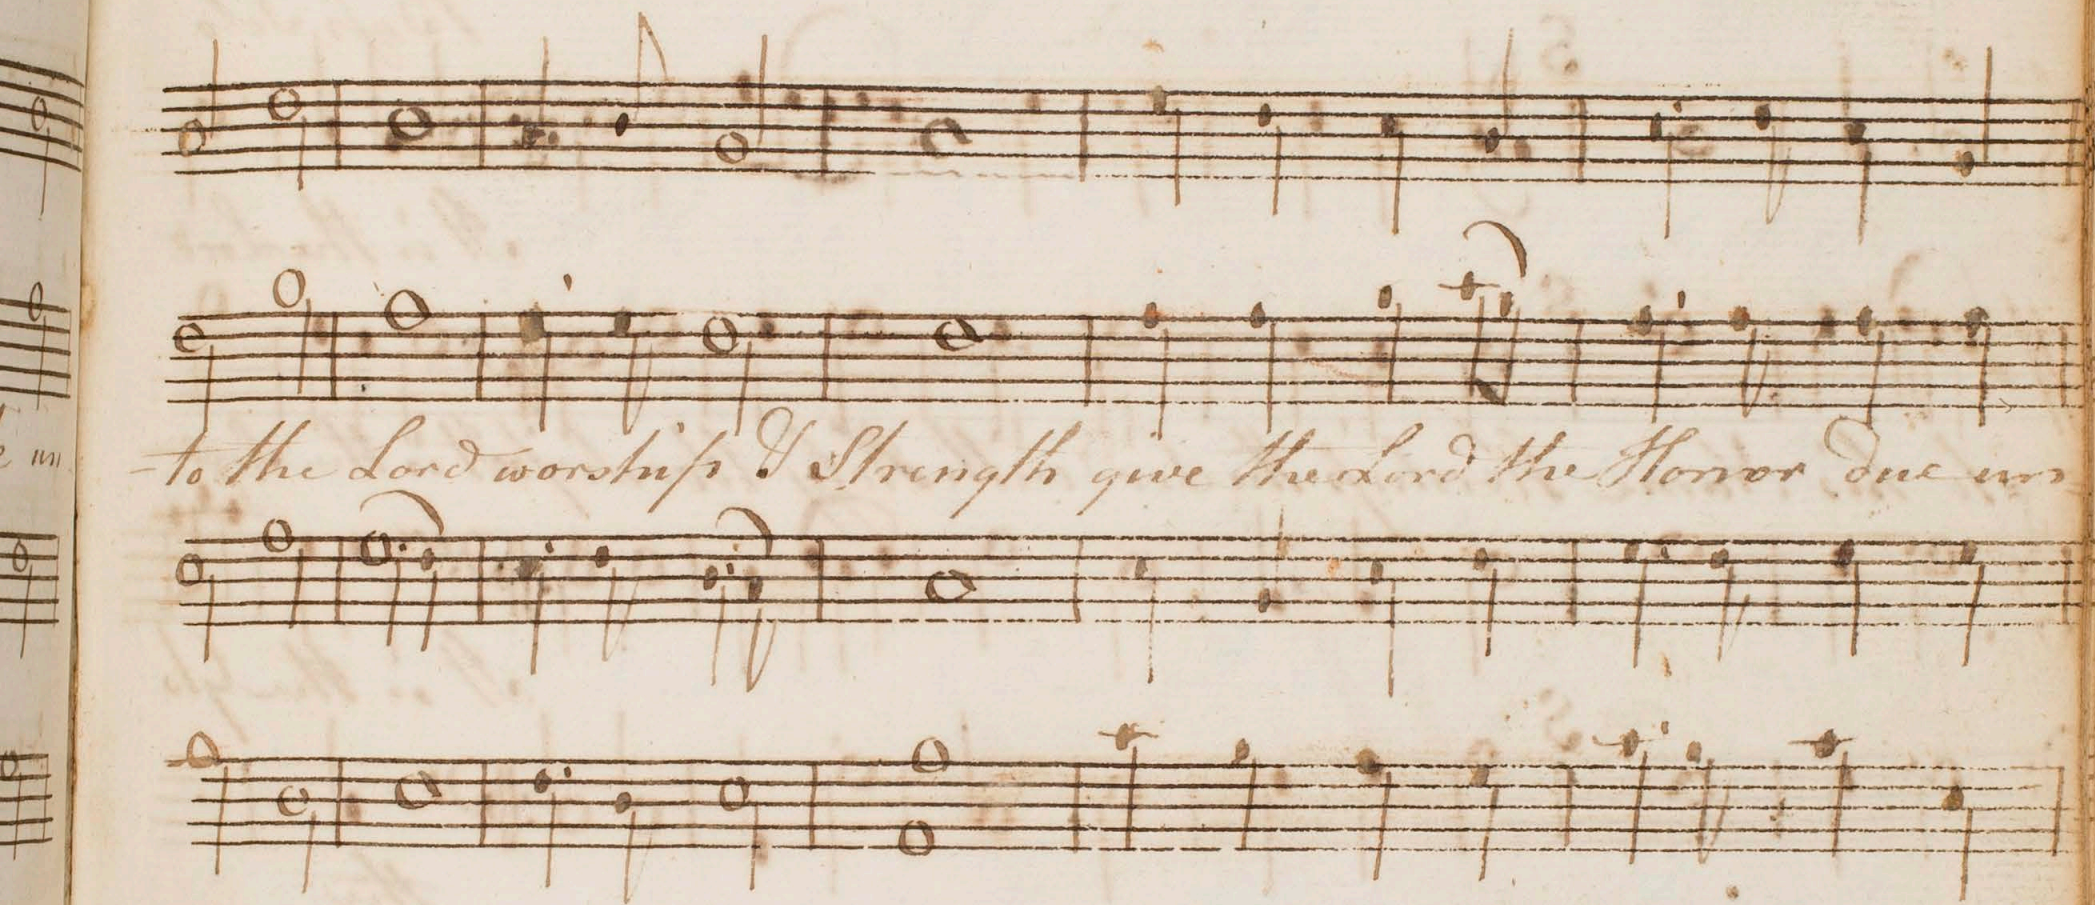 -to the Lord worship & Strength give the Lord the Honor due un